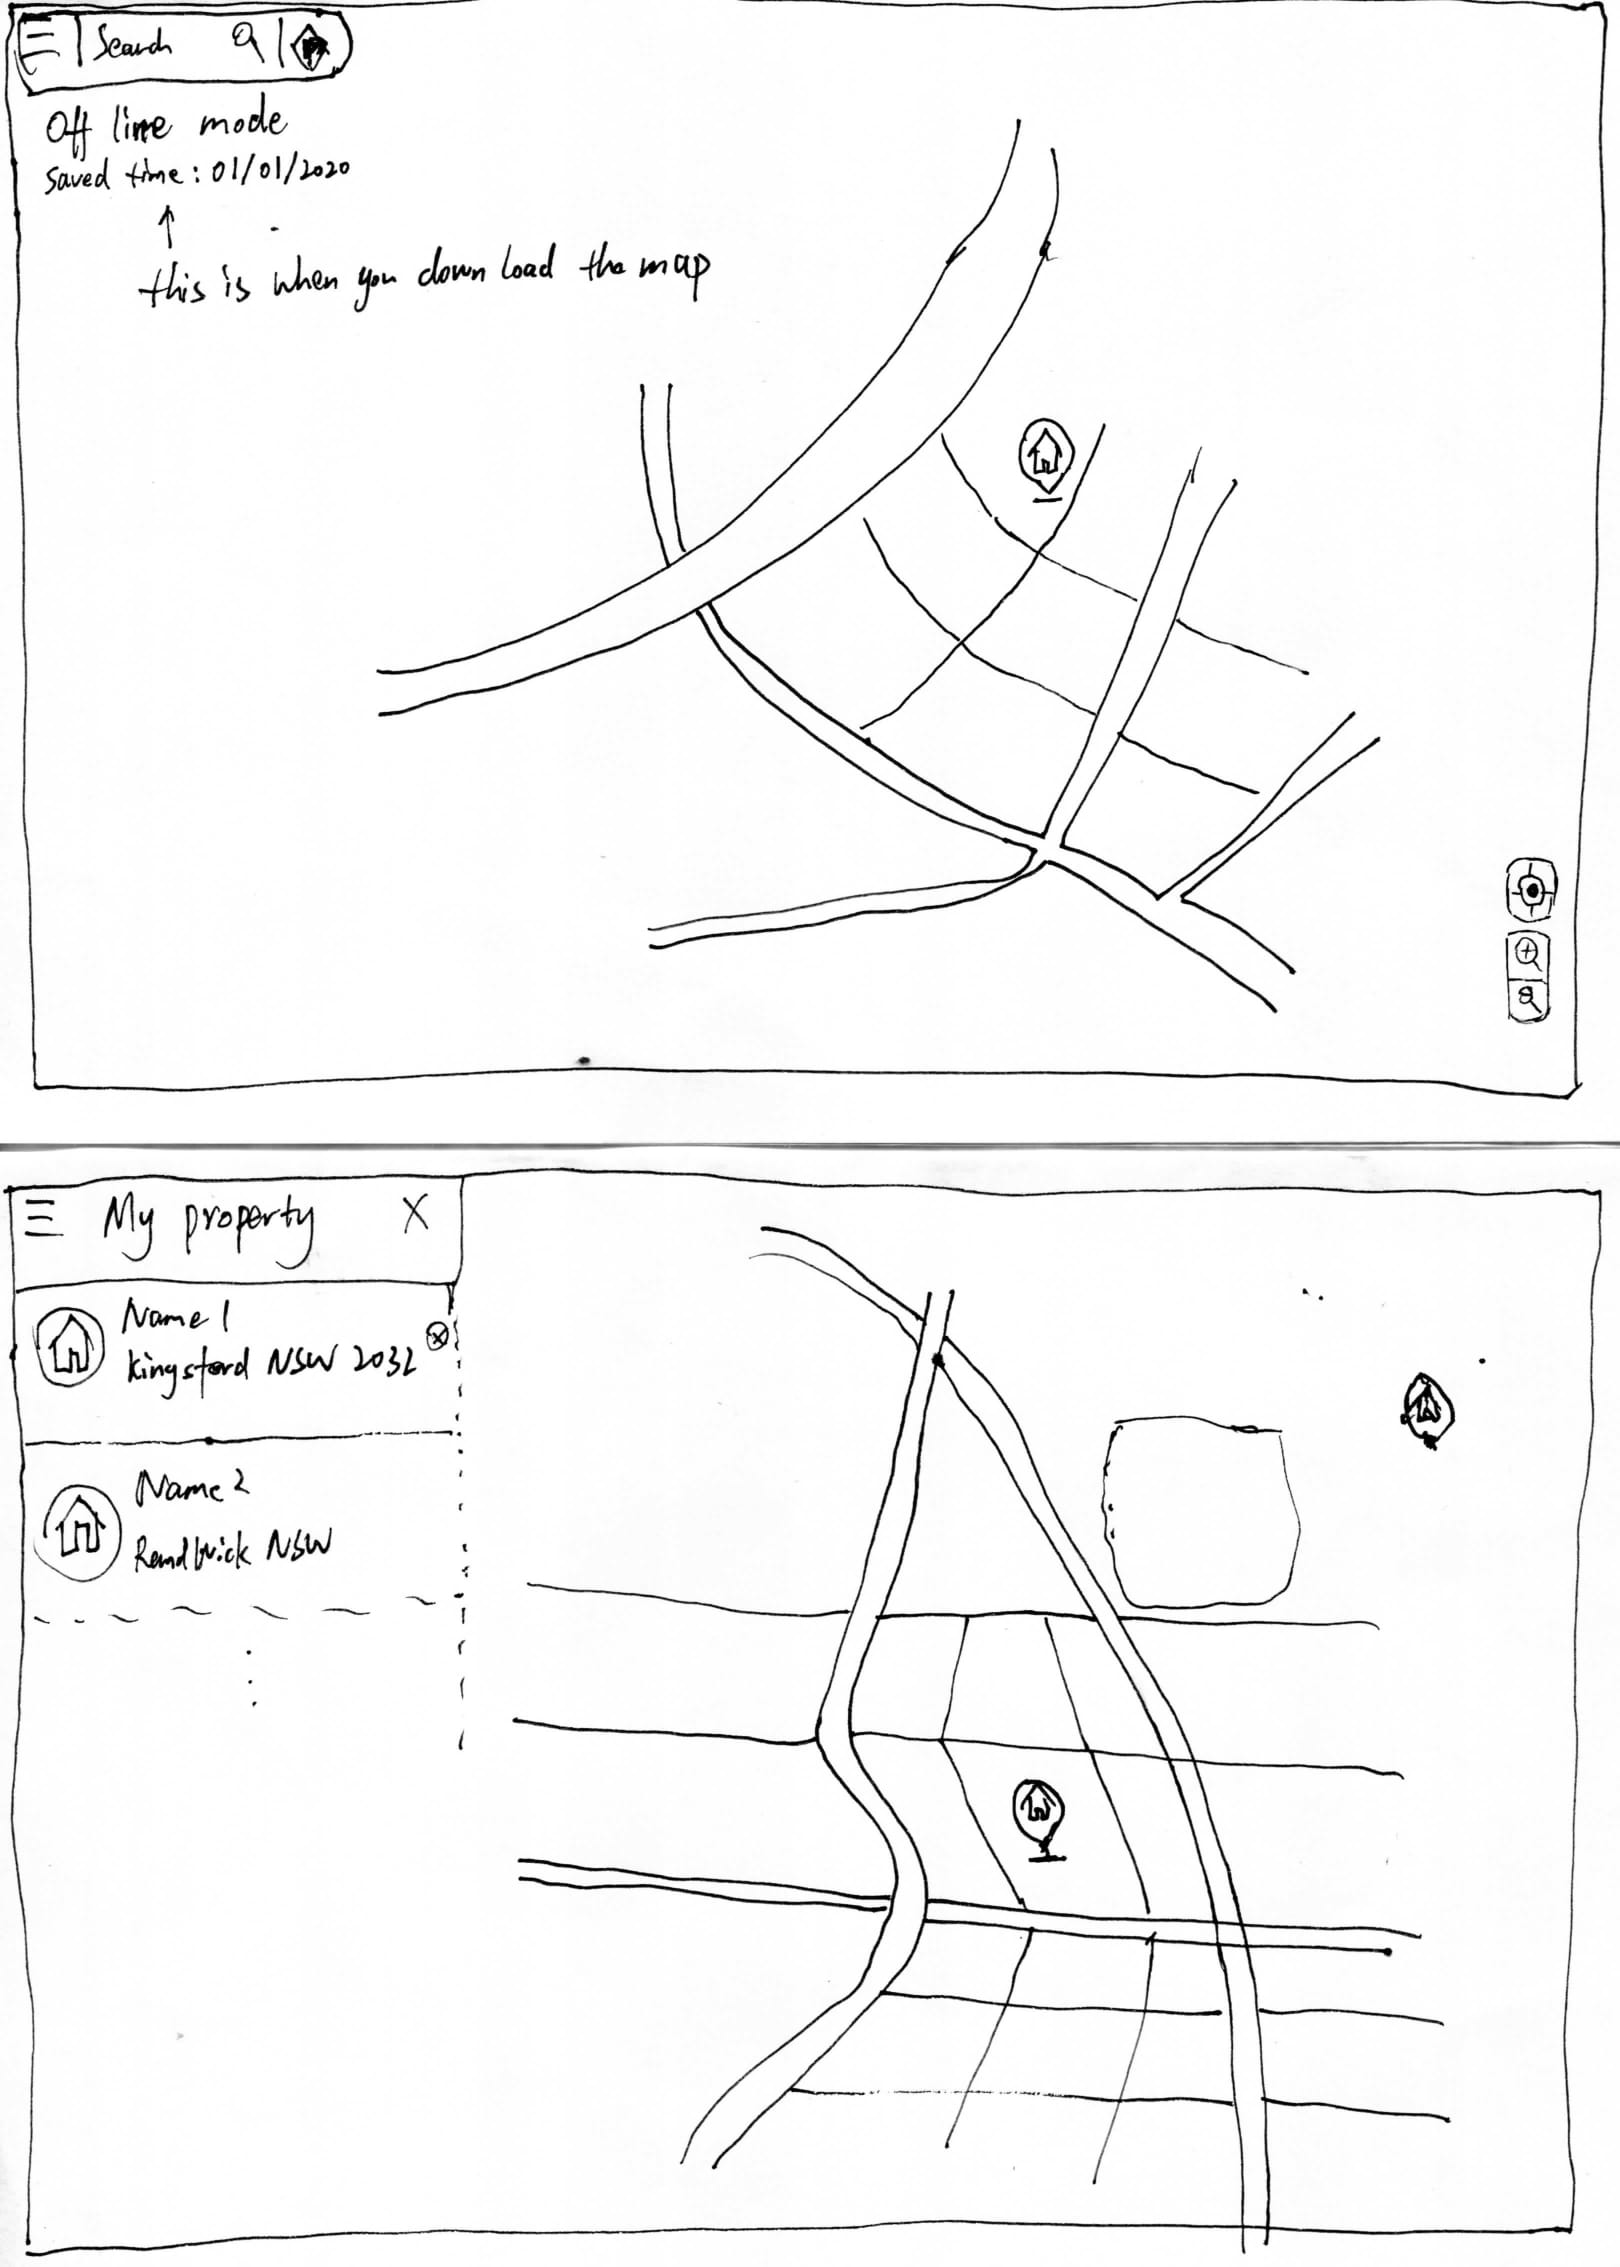 Search
Off line mode
Saved time : 01/01/2020
this is when you down load the map
My property X
Name 1
Kingsford NSW 2032
Name 2
Randwick NSW